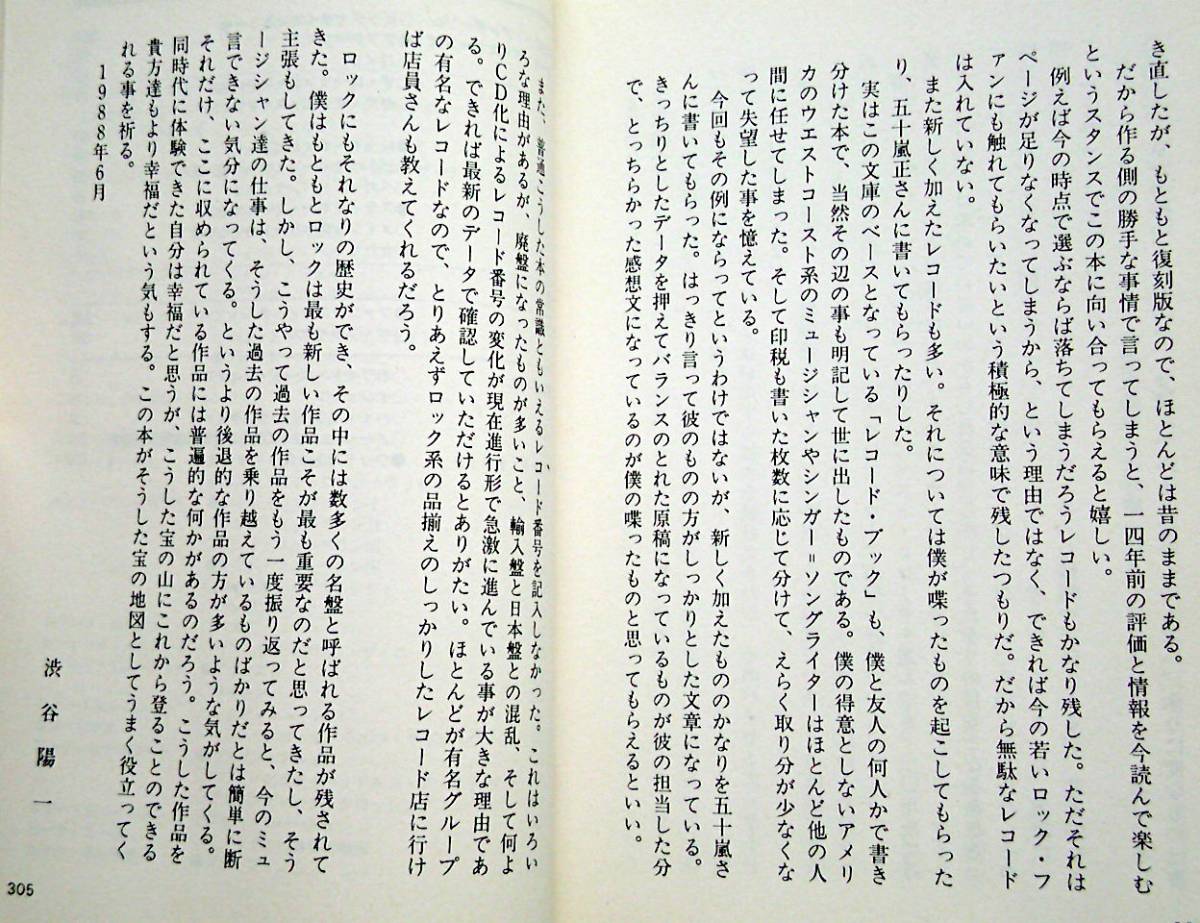 き直したが、もともと復刻版なので、ほとんどは昔のままである。
だから作る側の勝手な事情で言ってしまうと、一四年前の評価と情報を今読んで楽しむ
というスタンスでこの本に向い合ってもらえると嬉しい。
例えば今の時点で選ぶならば落ちてしまうだろうレコードもかなり残した。ただそれは
ページが足りなくなってしまうから、という理由ではなく、できれば今の若いロック・フ
ァンにも触れてもらいたいという積極的な意味で残したつもりだ。だから無駄なレコード
は入れていない。
また新しく加えたレコードも多い。それについては僕が喋ったものを起こしてもらった
り、五十嵐正さんに書いてもらったりした。
実はこの文庫のベースとなっている「レコード・ブック」も、僕と友人の何人かで書き
分けた本で、当然その辺の事も明記して世に出したものである。僕の得意としないアメリ
カのウエストコースト系のミュージシャンやシンガー＝ソングライターはほとんど他の人
間に任せてしまった。そして印税も書いた枚数に応じて分けて、えらく取り分が少なくな
って失望した事を憶えている。
今回もその例にならってというわけではないが、新しく加えたもののかなりを五十嵐さ
んに書いてもらった。はっきり言って彼のものの方がしっかりとした文章になっている。
きっちりとしたデータを押えてバランスのとれた原稿になっているものが彼の担当した分
で、とっちらかった感想文になっているのが僕の喋ったものと思ってもらえるといい。
また、普通こうした本の常識ともいえるレコード番号を記入しなかった。これはいろい
ろな理由があるが、廃盤になったものが多いこと、輸入盤と日本盤との混乱、そして何よ
りＣＤ化によるレコード番号の変化が現在進行形で急激に進んでいる事が大きな理由であ
る。できれば最新のデータで確認していただけるとありがたい。ほとんどが有名グループ
の有名なレコードなので、とりあえずロック系の品揃えのしっかりしたレコード店に行け
ば店員さんも教えてくれるだろう。
ロックにもそれなりの歴史ができ、その中には数多くの名盤と呼ばれる作品が残されて
きた。僕はもともとロックは最も新しい作品こそが最も重要なのだと思ってきたし、そう
主張もしてきた。しかし、こうやって過去の作品をもう一度振り返ってみると、今のミュ
ージシャン達の仕事は、そうした過去の作品を乗り越えているものばかりだとは簡単に断
言できない気分になってくる。というより後退的な作品の方が多いような気がしてくる。
それだけ、ここに収められている作品には普遍的な何かがあるのだろう。こうした作品を
同時代に体験できた自分は幸福だと思うが、こうした宝の山にこれから登ることのできる
貴方達もより幸福だという気もする。この本がそうした宝の地図としてうまく役立ってく
れる事を祈る。
１９８８年６月
渋谷陽一
305